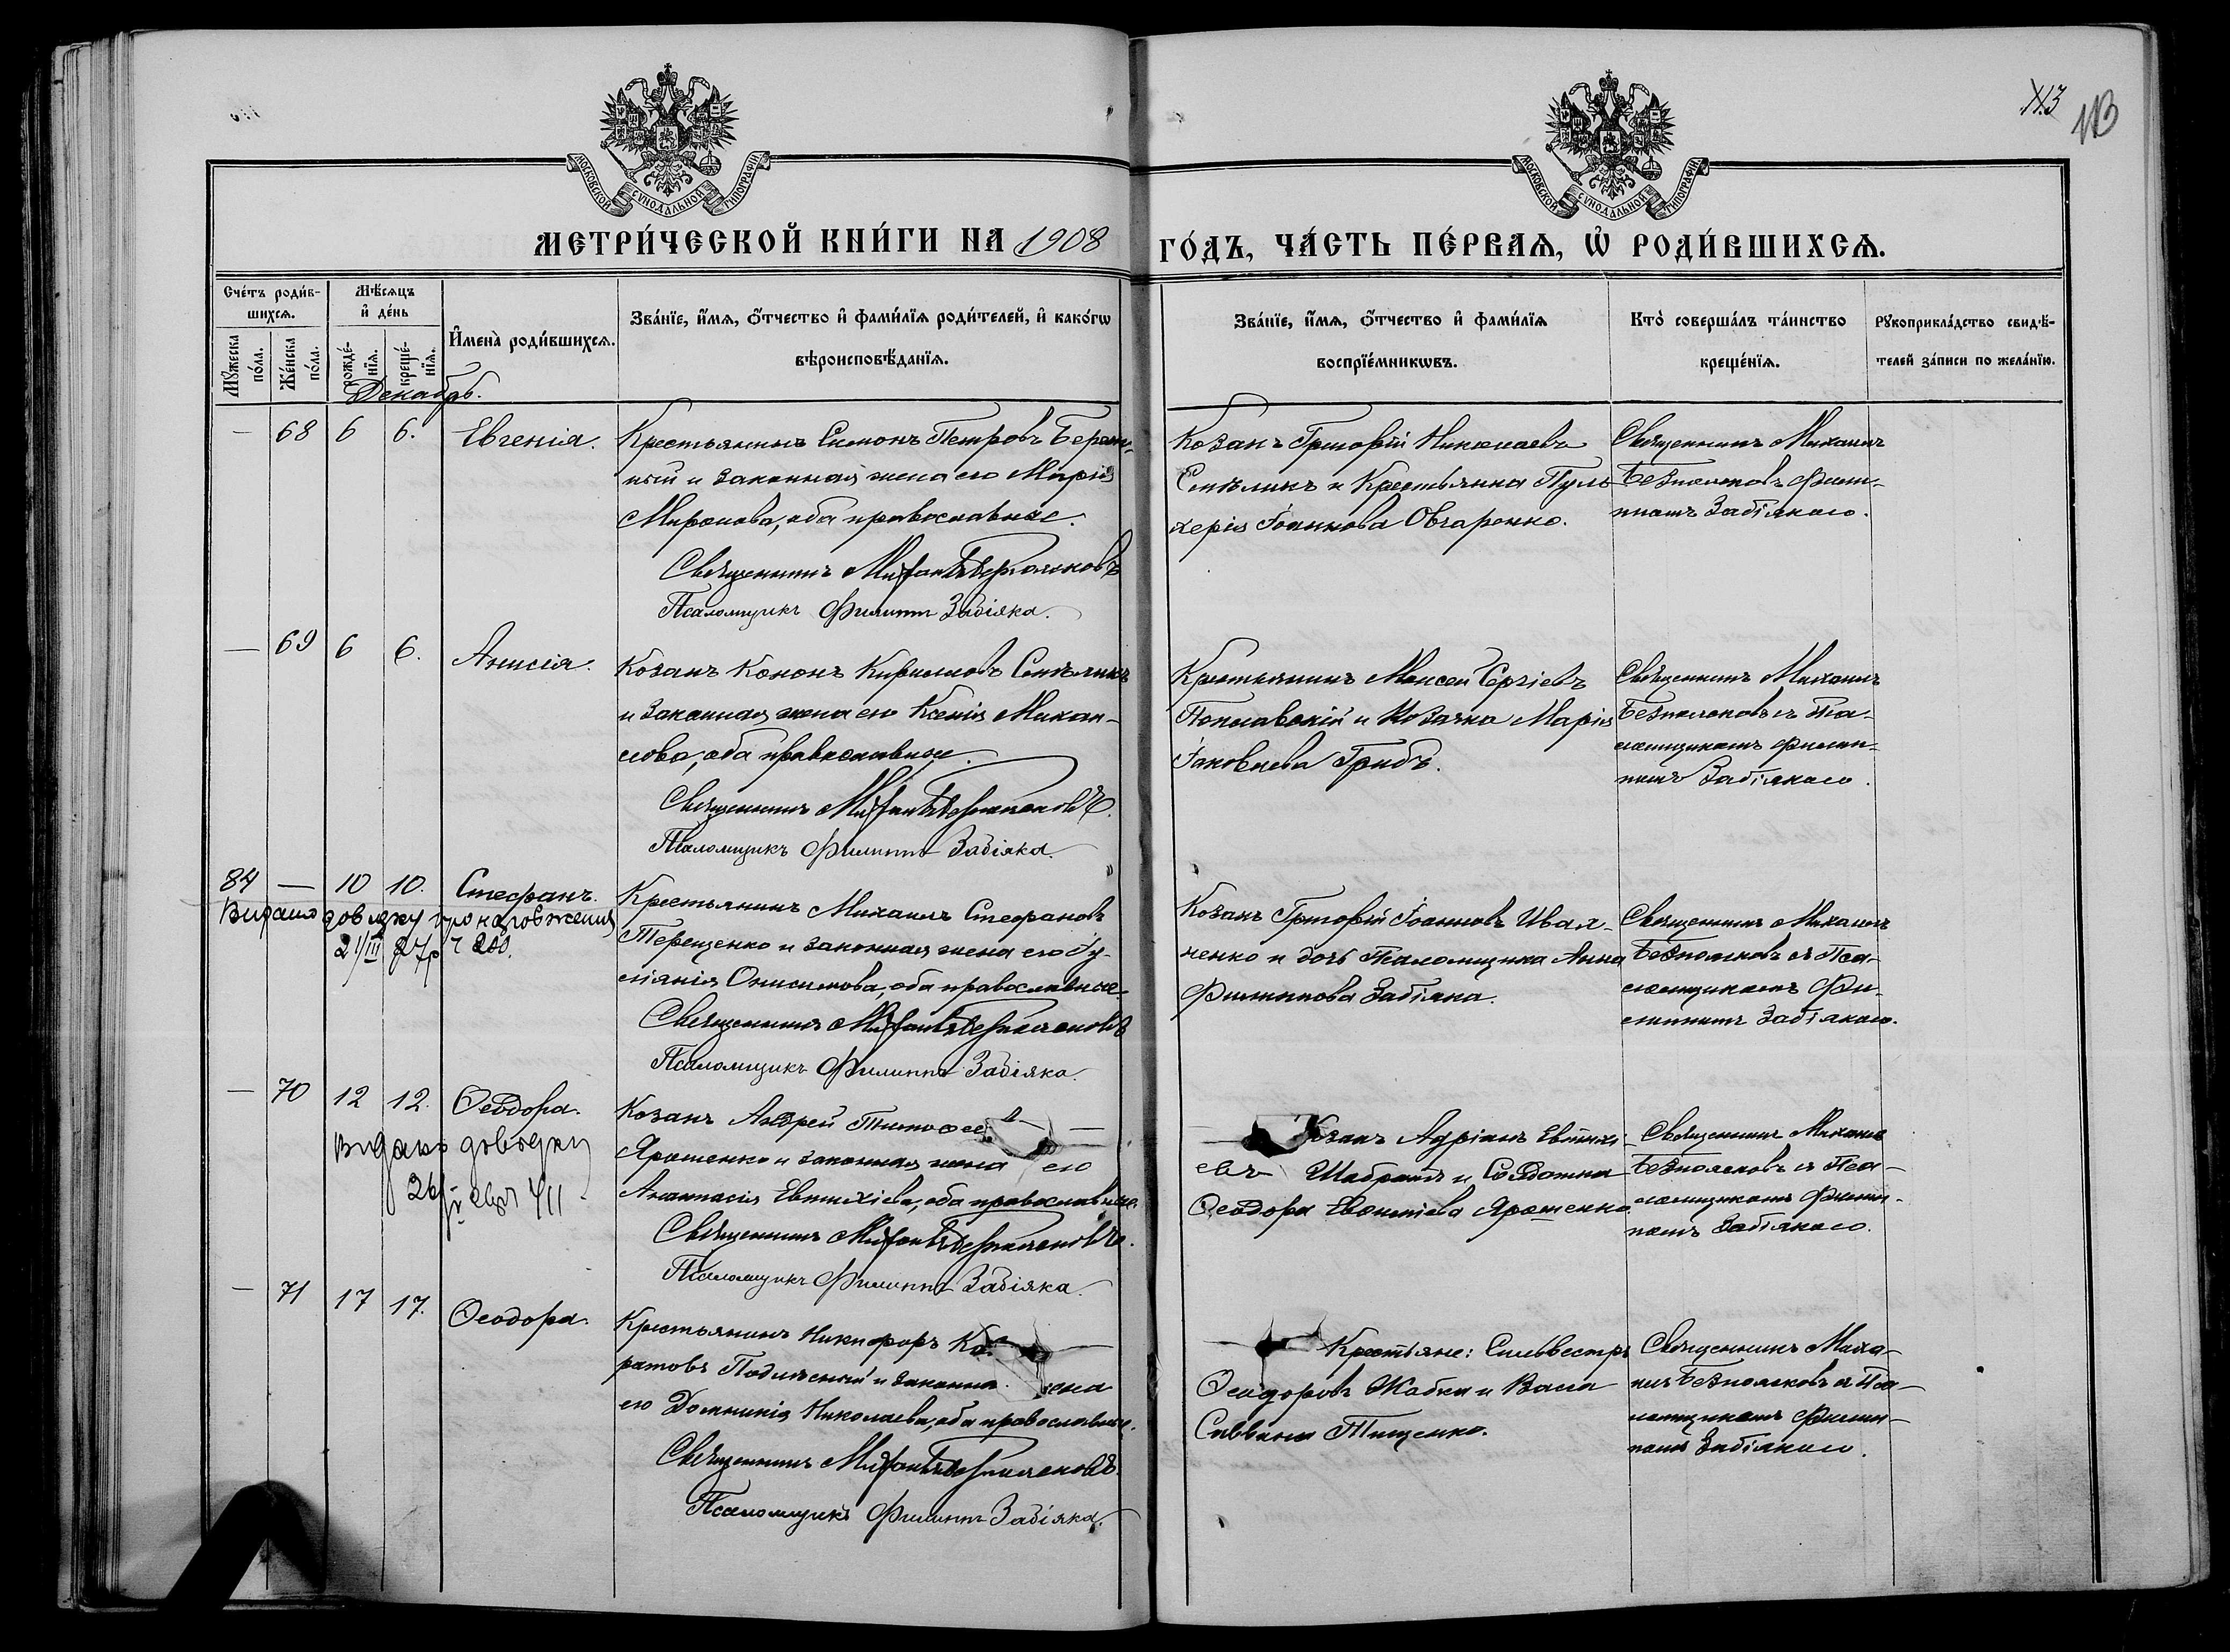 113
113
МОСКОВСКОЙ СУНОДАЛЬНОЙ ТИПОГРАФІИ
МОСКОВСКОЙ СУНОДАЛЬНОЙ ТИПОГРАФІИ
МЕТРИ́ЧЕСКОЙ КНИ́ГИ НА 1908 ГО́ДЪ, ЧА́СТЬ ПЕ́РВАѦ, Ѡ҆ РОДИ́ВШИХСѦ.
Сче́тъ роди́в-
шихсѧ.
Мꙋ́жеска по́ла.
Же́нска по́ла.
Мѣ́сѧцъ
и҆ де́нь
рожде́-
нїѧ.
креще́-
нїѧ.
И҆мена̀ роди́вшихсѧ.
Зва́нїе, и҆́мѧ, ѻ҆́тчество и҆ фами́лїѧ роди́телей, и҆ како́гѡ
вѣроисповѣ́данїѧ.
Зва́нїе, и҆́мѧ, ѻ҆́тчество и҆ фами́лїѧ
воспрїе́мникѡвъ.
Кто̀ соверша́лъ та́инство
креще́нїѧ.
Рꙋкоприкла́дство свидѣ́-
телей за́писи по жела́нїю.
Декабрь.
— 68 6 6. Евгенія.
Крестьянинъ Симонъ Петровъ
и законная жена его Марія
Миронова, оба православные.
Священникъ Михаилъ Безпоясковъ
Псаломщикъ Филиппъ Забіяка.
Козакъ Григорій Николаевъ
Смѣликъ и Крестьянка Пуль-
херія Іоаннова Овчаренко.
Священникъ Михаилъ
Безпоясковъ Филип-
помъ Забіякаго.
— 69 6 6. Анисія.
Козакъ Кононъ Кирилловъ Смѣликъ
и законная жена его Ксенія Михаи-
лова, оба православные.
Священникъ Михаилъ Безпоясковъ.
Псаломщикъ Филиппъ Забіяка.
Крестьянинъ Моисей Сергіевъ
Поплавскій и Козачка Марія
Іаковлева Грибъ.
Священникъ Михаилъ
Безпоясковъ съ Пса-
ломщикомъ Филип-
помъ Забіякаго.
84 — 10 10. Стефанъ.
Видано довідку про народження
21/III 27р ч 200.
Крестьянинъ Михаилъ Стефановъ
Терещенко и законная жена его Іу-
ліанія Онисимова, оба православные.
Священникъ Михаилъ Безпоясковъ
Псаломщикъ Филиппъ Забіяка.
Козакъ Григорій Іоанновъ Ива-
ченко и дочь Псаломщика Анна
Филиппова Забіяка.
Священникъ Михаилъ
Безпоясковъ съ Пса-
ломщикомъ Фи-
липпомъ Забіякаго.
— 70 12 12. Ѳеодора.
Видано довідку
Козакъ Андрей Тимофее въ —
Ярошенко и законная жена его
Анастасія Евтихіева, оба православные.
Священникъ Михаилъ Безпоясковъ.
Псаломщикъ Филиппъ Забіяка.
— Козакъ Адріанъ Евтихі-
евъ Шабратъ и Солдатка
Ѳеодора Евѳиміева Ярошенко
Священникъ Михаилъ
Безпоясковъ съ Пса-
ломщикомъ Филип-
помъ Забіякаго.
— 71 17 17. Ѳеодора.
Крестьянинъ Никифоръ Ко
ратовъ и законна жена
его Домникія Николаева, оба православные.
Священникъ Михаилъ Безпоясковъ.
Псаломщикъ Филиппъ Забіяка.
— Крестьяне: Сильвестръ
Ѳеодоровъ Жабка и Васса
Саввина Тищенко.
Священникъ Миха-
илъ Безпоясковъ съ Пса-
ломщикомъ Филип-
помъ Забіякаго.